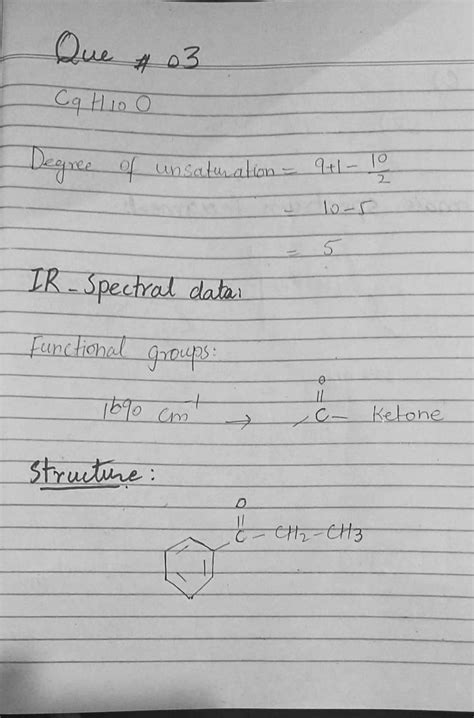 Que # 03
C9H10O
Degree of unsaturation = 9+1- 10/2
= 10-5
= 5
IR - Spectral data:
Functional groups:
O
1690 cm-1 → -C- Ketone
Structure:
O
C-CH2-CH3